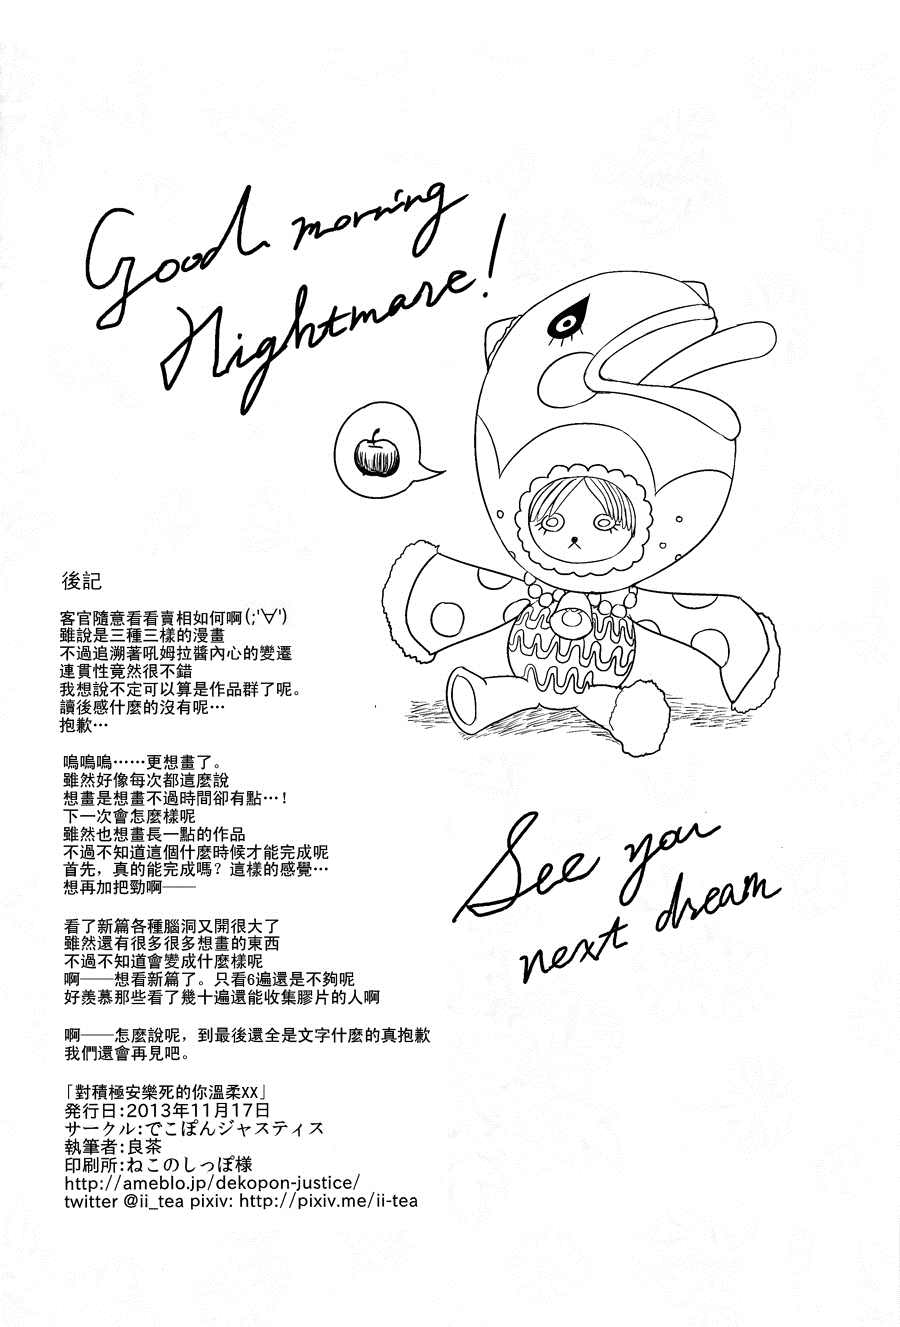 Good morning
Nightmare!
後記
客官隨意看看賣相如何啊(;'∀')
雖說是三種三樣的漫畫
不過追溯著吼姆拉醬內心的變遷
連貫性竟然很不錯
我想說不定可以算是作品群了呢。
讀後感什麼的沒有呢…
抱歉…
嗚嗚嗚……更想畫了。
雖然好像每次都這麼說
想畫是想畫不過時間卻有點…！
下一次會怎麼樣呢
雖然也想畫長一點的作品
不過不知道這個什麼時候才能完成呢
首先，真的能完成嗎？這樣的感覺…
想再加把勁啊——
看了新篇各種腦洞又開很大了
雖然還有很多很多想畫的東西
不過不知道會變成什麼樣呢
啊——想看新篇了。只看6遍還是不夠呢
好羨慕那些看了幾十遍還能收集膠片的人啊
啊——怎麼說呢，到最後還全是文字什麼的真抱歉
我們還會再見吧。
「對積極安樂死的你溫柔XX」
発行日:2013年11月17日
サークル:でこぽんジャスティス
執筆者:良茶
印刷所:ねこのしっぽ様
http://ameblo.jp/dekopon-justice/
twitter @ii_tea pixiv: http://pixiv.me/ii-tea
See you
next dream